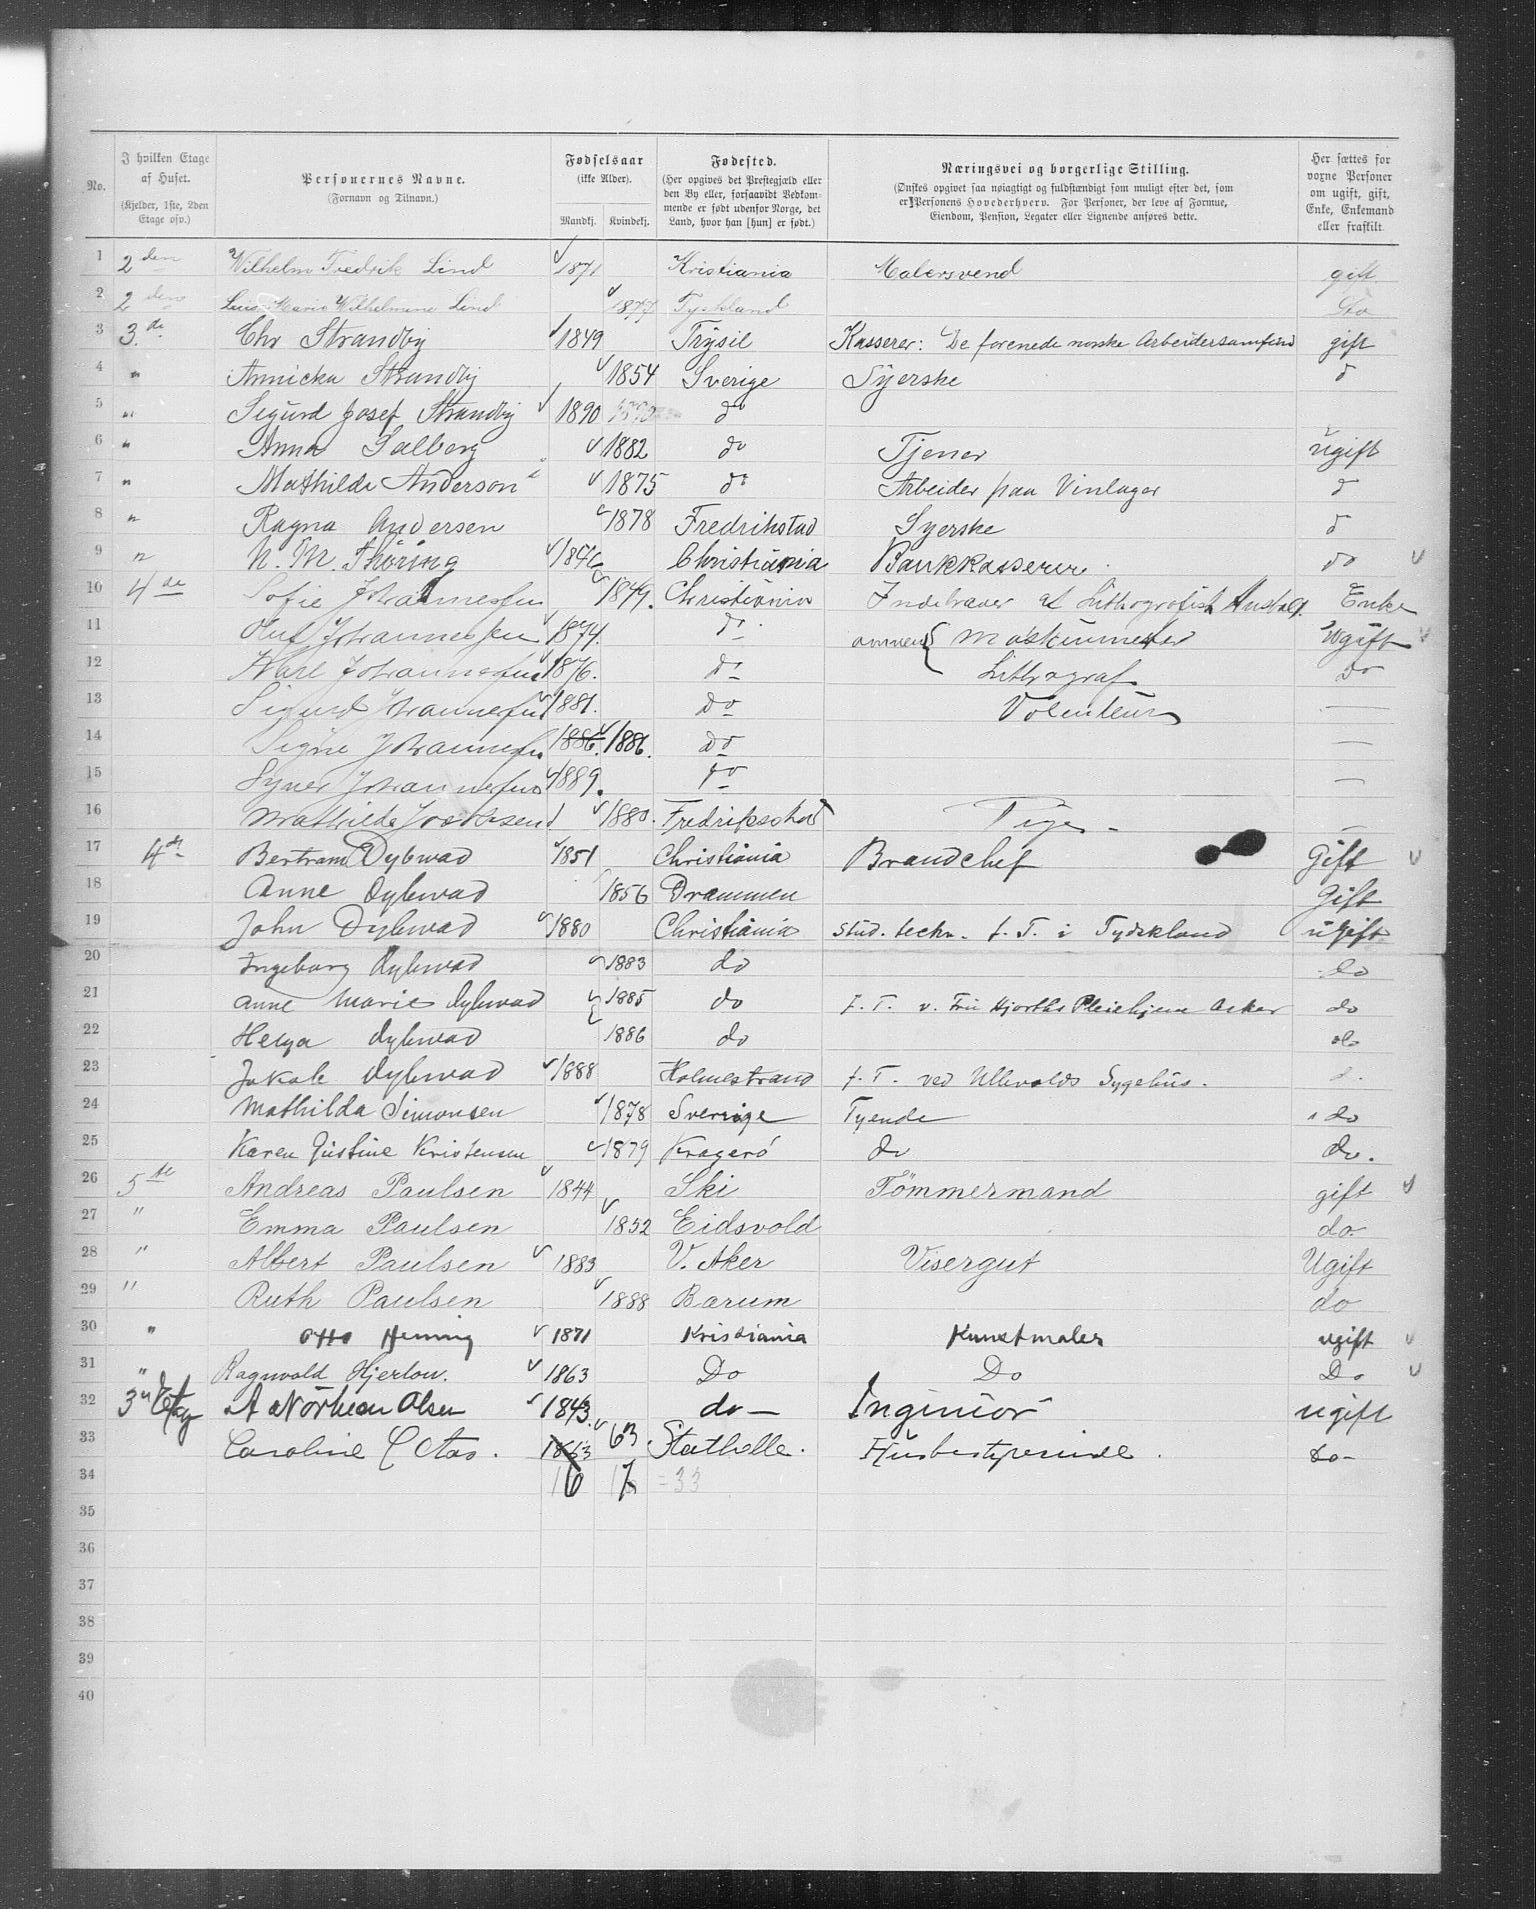 No. | I hvilken Etage af Huset. (Kjelder, 1ste, 2den Etage osv.) | Personernes Navne. (Fornavn og Tilnavn.) | Fødselsaar (ikke Alder). Mandkj. Kvindekj. | Fødested. (Her opgives det Prestegjæld eller den By eller, forsaavidt Vedkommende er født udenfor Norge, det Land, hvor han [hun] er født.) | Næringsvei og borgerlige Stilling. (Ønskes opgivet saa nøiagtigt og fuldstændigt som muligt efter det, som er Personens Hovederhverv. For Personer, der leve af Formue, Eiendom, Pension, Legater eller Lignende anføres dette. | Her sættes for voxne Personer om ugift, gift, Enke, Enkemand eller fraskilt.
1 2den Wilhelm Fredrik Lind 1871 Kristiania Malersvend gift
2 2den Luise Marie Wilhelmine Lind 1877 Tyskland Do
3 3de Chr Strandby 1849 Trysil Kasserer: De forenede norske Arbeidersamfund gift
4 " Annicka Strandby 1854 Sverige Syerske d
5 " Sigurd Josef Strandby 1890 do
6 " Anna Salberg 1882 do Tjener ugift
7 " Mathilde Anderson 1875 do Arbeider paa Vinlager d
8 " Ragna Andersen 1878 Fredrikstad Syerske d
9 " N. M. Thøring 1846 Christiania Bankkasserer do
10 4de Sofie Johannessen 1849. Christiania Indehaver af Lithografisk Anstalt. Enke
11 Olaf Johannessen 1874. do Maskinmester Ugift
12 Karl Johannessen 1876. do Lithograf do
13 Sigurd Johannessen 1881. do Volentør —
14 Signe Johannessen 1886. 1886. do —
15 Syver Johannessen 1889. do —
16 Mathilde Jacobsen 1880. Fredriksstad Pige —
17 4de Bertram Dybwad 1851 Christiania Brandchef Gift
18 Anne Dybwad 1856 Drammen Gift
19 John Dybwad 1880 Christiania stud. techn. f. T. i Tydskland ugift
20 Ingeborg Dybwad 1883 do do
21 Anne Marie Dybwad 1885 do f. T. v. Fru Hjorths Pleiehjem Asker do
22 Helga Dybwad 1886 do do
23 Jakob Dybwad 1888 Holmestrand f. T. ved Ullevolds Sygehus. d.
24 Mathilda Simonsen 1878 Sverrige Tyende do
25 Karen Gustine Kristensen 1879 Kragerö do do.
26 5te Andreas Paulsen 1844 Ski Tömmermand gift
27 " Emma Paulsen 1852 Eidsvold do.
28 " Albert Paulsen 1883 V. Aker Visergut Ugift
29 " Ruth Paulsen 1888 Barum do
30 " Otto Hennig 1871 Kristiania Kunstmaler ugift
31 " Ragnvald Hjerlow. 1863 Do Do Do
32 3die Etag A. Olsen 1843. do — Ingeniör ugift
33 Caroline 1863 63 Stathelle. Husbestyrerinde. Do-
34 16 17 =33
35
36
37
38
39
40